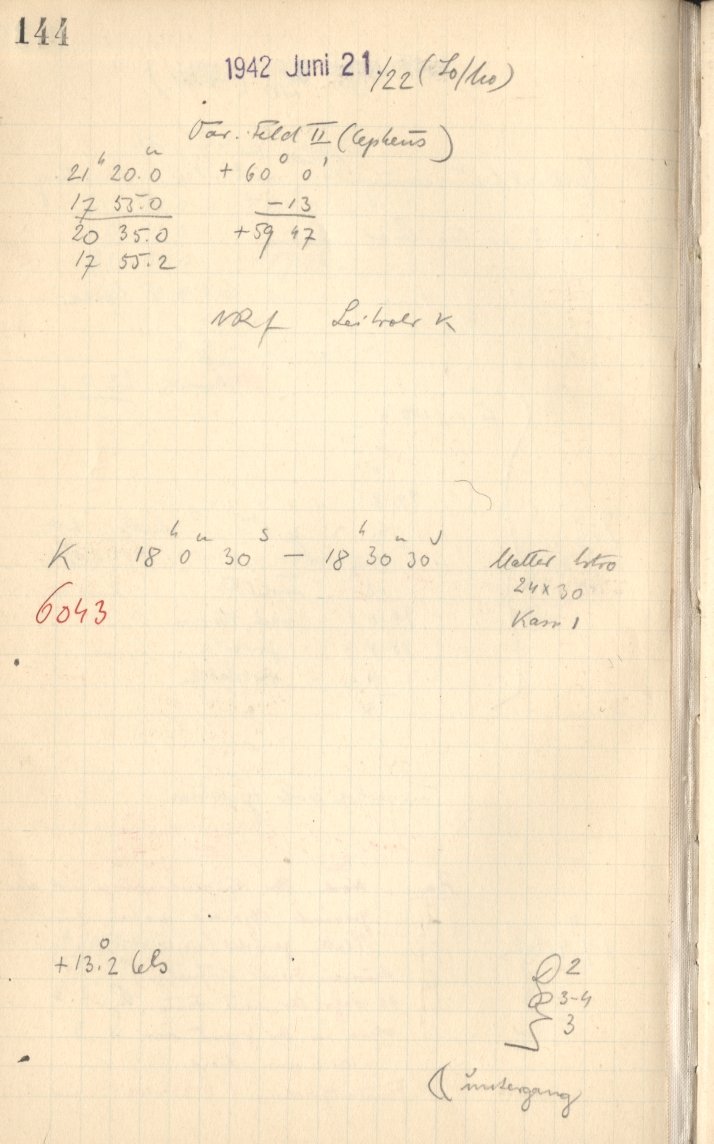 144
1942 Juni 21./22 (So/Mo)
Var. Feld II (Cepheus)
21ʰ 20.0ᵐ + 60° 0'
17 55.0 -13
20 35.0 +59 47
17 55.2
Leitrohr K
K 18ʰ 0ᵐ 30ˢ — 18ʰ 30ᵐ 30ˢ Matter Astro
6043 24x30
Kass 1
+13.°2 Cels
2
3-4
3
untergang